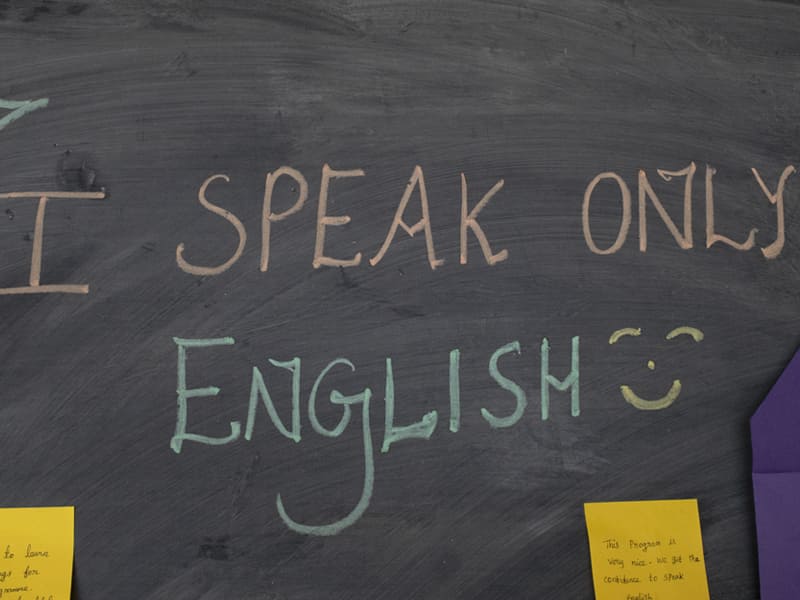 I SPEAK ONLY
ENGLISH
to learn
for
This Program is
very nice. we get the
confidence to speak
English